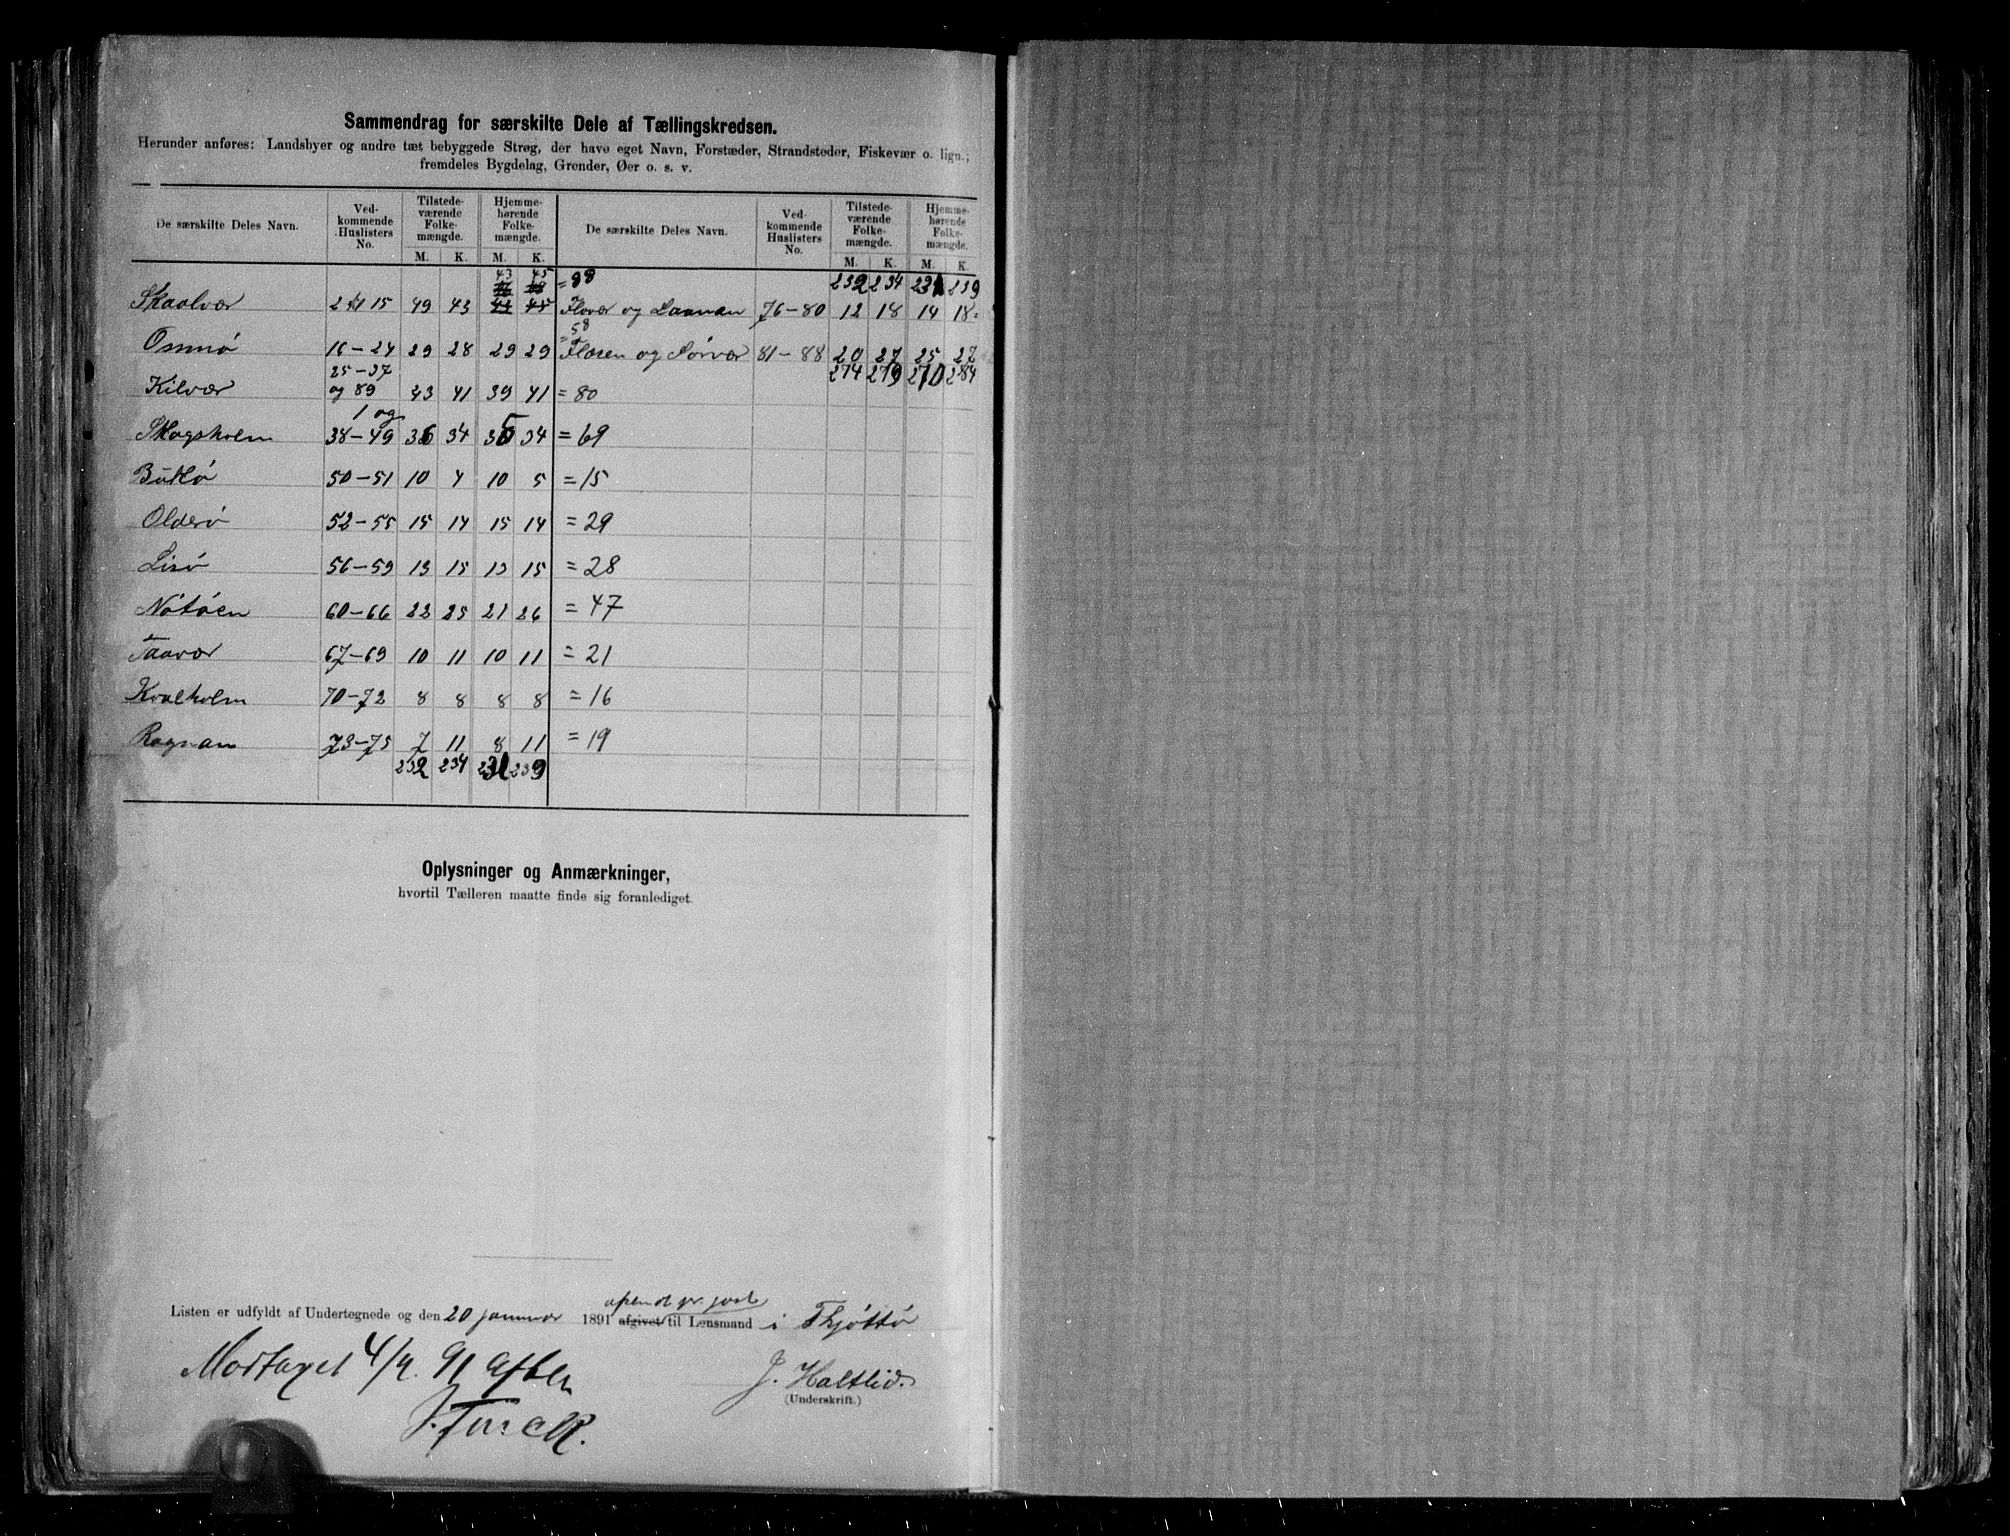 Sammendrag for særskilte Dele af Tællingskredsen.
Herunder anføres: Landsbyer og andre tæt bebyggede Strøg, der have eget Navn, Forstæder, Strandsteder, Fiskevær o. lign.;
fremdeles Bygdelag, Grender, Øer o. s. v.
De særskilte Deles Navn. Ved-kommende Huslisters No. Tilstede-værende Folke-mængde. Hjemme-hørende Folke-mængde. De særskilte Deles Navn. Ved-kommende Huslisters No. Tilstede-værende Folke-mængde. Hjemme-hørende Folke-mængde.
M. K. M. K. M. K. M. K.
43 45 = 88 232 234 231 239
Skaalvær 2 15 49 43 43 45 Flovær og Laanan 76-80 12 18 14 18
= 58
Osmnø 16-24 29 28 29 29 Flæsen og Sørvær 81-88 20 27 25 27
25-37 274 279 270 284
Kilvær og 89 43 41 39 41 = 80
1 og
Skogsholm 38-49 36 34 35 34 = 69
Buklø 50-51 10 4 10 5 = 15
Olderø 52-55 15 14 15 14 = 29
Lisø 56-59 13 15 13 15 = 28
Nøtøen 60-66 22 25 21 26 = 47
Taavær 67-69 10 11 10 11 = 21
Kvalholm 70-72 8 8 8 8 = 16
Rognan 73-75 7 11 8 11 = 19
232 234 231 239
Oplysninger og Anmærkninger,
hvortil Tælleren maatte finde sig foranlediget.
afsendt pr. post
Listen er udfyldt af Undertegnede og den 20 januar 1891 afgivet til Lensmand i Thjøttø
Modtaget 4/2. 91
J. Haltlid.
(Underskrift.)